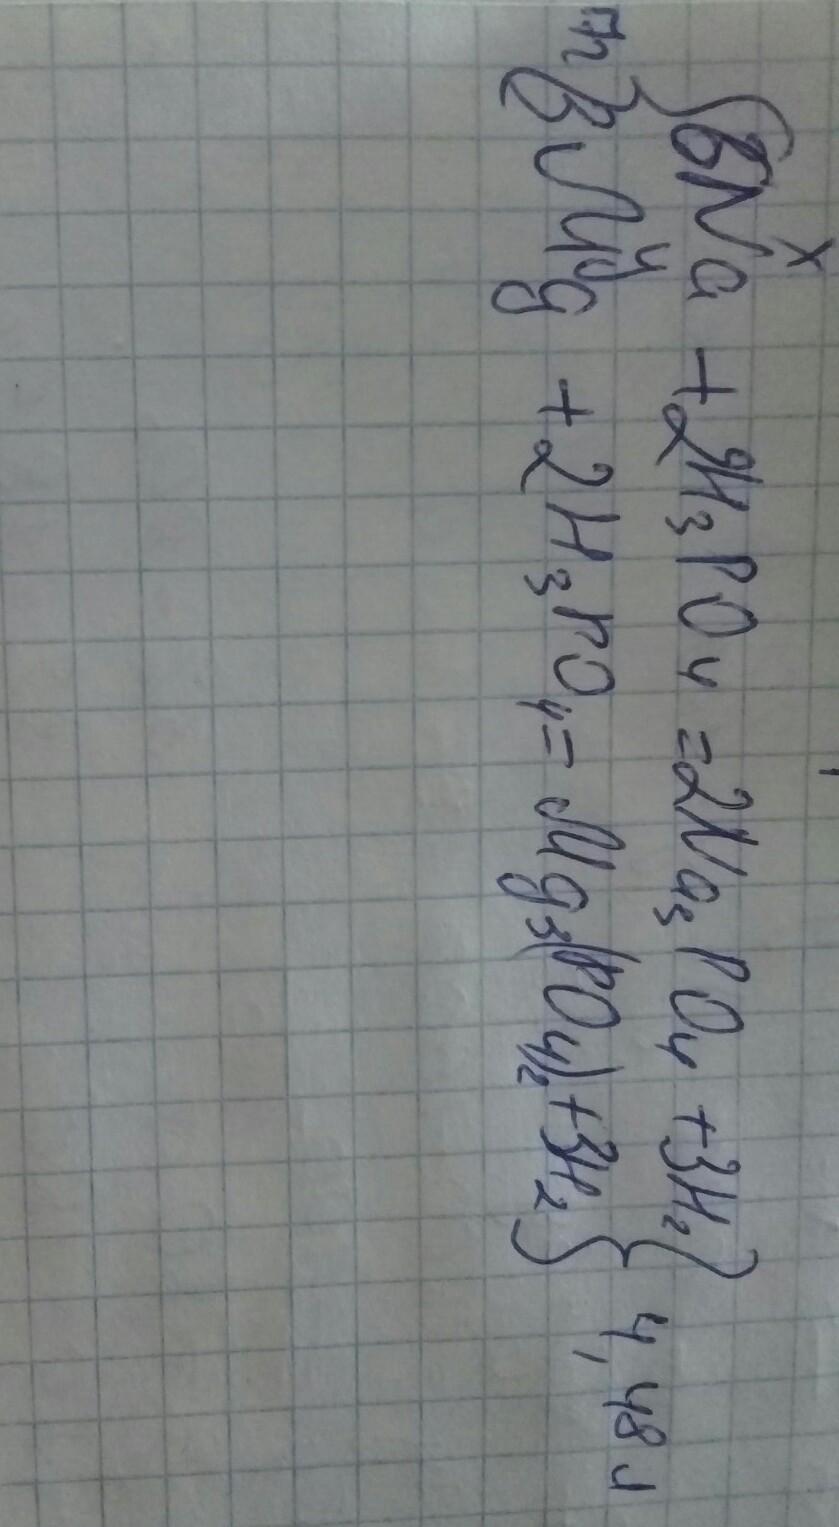 x
6Na + 2H₃PO₄ = 2Na₃PO₄ + 3H₂
y
3Mg + 2H₃PO₄ = Mg₃(PO₄)₂ + 3H₂
4,48 л